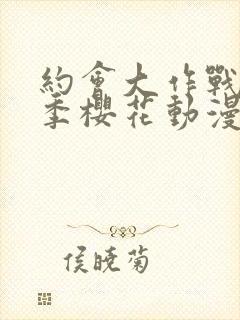 約會大作戰
季櫻花動漫
侯曉菊